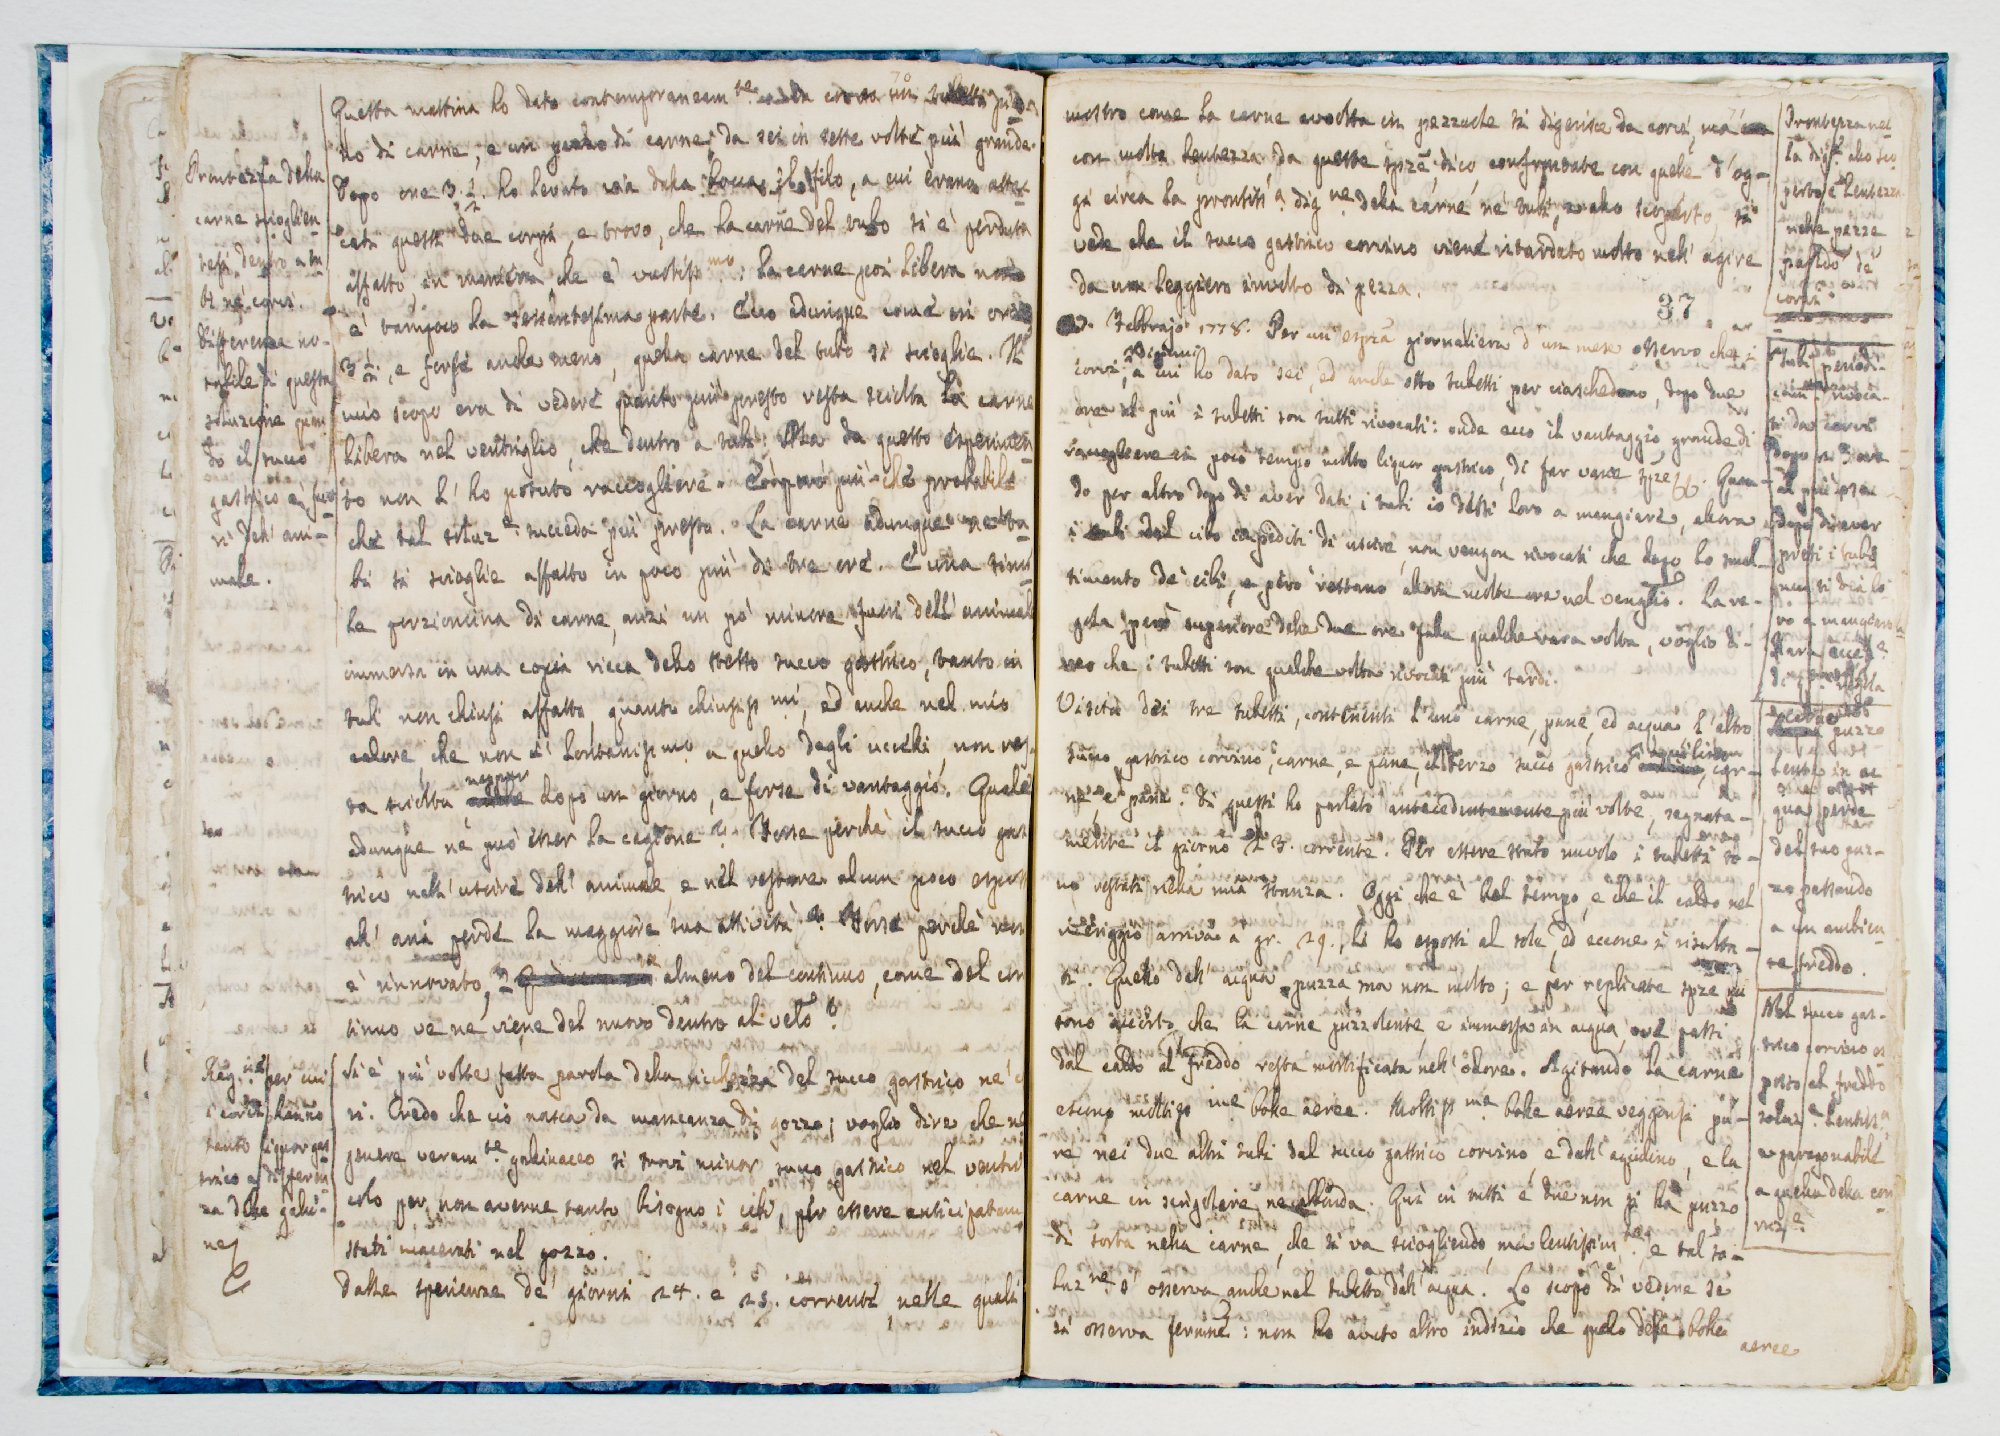 Questa mattina ho dato contemporaneam.te
no di carne, e un pezzo di carne da sei in sette volte più grande.
Dopo ore 3 1/2 ho levato via dalla bocca il filo, a cui erano attac-
cati questi due corpi, e trovo, che la carne del tubo si è perduta
affatto in maniera che è vuotiss.mo: la carne poi libera non
è tampoco la sessantesima parte. Ecco adunque come in ore
3 1/2, e forse anche meno, quella carne del tubo si scioglie. Il
mio scopo era di vedere quanto più presto resta sciolta la carne
libera nel ventriglio, che dentro a tubi: Ma da questo esperimen-
to non l'ho potuto raccogliere. È però più che probabile
che tal soluz.e succeda più presto. La carne adunque ne' tu-
bi si scioglie affatto in poco più di tre ore. E una simi-
le porzioncina di carne, anzi un po' minore fuori dell'animale
immersa in una copia ricca dello stesso succo gastrico, tanto in
tubi non chiusi affatto, quanto chiusiss.mi, ed anche nel mio
calore, che non è lontanissimo a quello degli uccelli, non res-
ta sciolta neppur dopo un giorno, e forse di vantaggio. Quale
adunque ne può esser la cagione? Forse perchè il succo gas-
trico nell'uscire dell'animale, e nel restare alcun poco esposto
all'aria perde la maggiore sua attività? Forse perchè non
è rinnovato, almeno del continuo, come del con-
tinuo ve ne viene del nuovo dentro al velo?
Si è più volte fatta parola della ricchezza del succo gastrico ne' cor-
vi. Credo che ciò nasca da mancanza di gozzo; voglio dire che nel
genere veram.te gallinaceo si trovi minor succo gastrico nel ventri-
colo per non averne tanto bisogno i cibi, per essere anticipatam.
stati macerati nel gozzo.
Dalle sperienze de' giorni 24. e 25. corrente nelle quali
Prontezza della
carne scioglien-
tesi dentro a tu-
bi ne' corvi.
Differenza no-
tabile di questa
soluzione quan-
do il succo
gastrico è fuo-
ri dell'ani-
male.
Rag.ne per cui
i corvi hanno
tanto liquor gas-
trico a differen-
za delle galli-
ne
mostro come la carne avvolta in pezzuole si digerisce da corvi, ma
con molta lentezza, da queste sprze dico confrontate con quelle d'og-
gi circa la prontit.a dig.ne della carne ne' tubi, allo scoperto, si
vede che il succo gastrico corvino viene ritardato molto nell'agire
da un leggiero involto di pezza.
37
Febbrajo 1778. Per un'esprza giornaliera d'un mese osservo che i
corvi digiuni, a cui ho dato sei, ed anche otto tubetti per ciascheduno, dopo due
ore al più i tubetti son tutti rivocati: onde ecco il vantaggio grande di
raccogliere in poco tempo molto liquor gastrico, di far varie sprze. Quan-
do per altro dopo di aver dati i tubi io dessi loro a mangiare, allora
i tubi dal cibo impediti di uscire, non vengon rivocati che dopo lo smal-
timento de' cibi, e però restano allora molte ore nel ventriglio. La re-
gola però superiore delle due ore falla qualche rara volta, voglio di-
re che i tubetti son qualche volta rivocati più tardi.
Visita dei tre tubetti, contenenti l'uno carne, pane, ed acqua, l'altro
succo gastrico corvino, carne, e pane, il terzo succo gastrico aquilino, car-
ne e pane. Di questi ho parlato antecedentemente più volte, segnata-
mente il giorno 23. corrente. Per essere stato nuvolo i tubetti so-
no restati nella mia stanza. Oggi che è bel tempo, e che il caldo nel
meriggio arriva a gr. 29., li ho esposti al sole, ed eccone i risulta-
ti. Quello dell'acqua puzza ma non molto; e per replicate sprze mi
sono accorto, che la carne puzzolente, e immersa in acqua, ove passi
dal caldo al freddo resta mortificata nell'odore. Agitando la carne
escono moltiss.me bolle aeree. Moltiss.me bolle aeree veggonsi pu-
re nei due altri tubi dal succo gastrico corvino, e dall'aquilino, e la
carne in singolare ne abbonda. Qui in tutti e due non si ha puzzo
di sorta nella carne, che si va sciogliendo, ma lentissim.te, e tal so-
luz.ne s'osserva anche nel tubetto dell'acqua. Lo scopo di vedere se
si osserva fermine: non ho avuto altro indizio che quello delle bolle
aeree
Prontezza nel-
la dig.e allo sco-
perto, e lentezza
nelle pezze
corvi
Tubi periodi-
cam.e rivoca-
ti da' corvi
dopo
al più
dopo di aver
presi i tubi
non si dia lo-
ro a mangiare
Rara eccez.e
di questa regola
puzzo-
lente in ac-
qua perde
del suo puz-
zo passando
a un ambien-
te freddo.
Nel succo gas-
trico corvino es-
posto al freddo
soluz.e lentiss.a
e paragonabile
a quella della